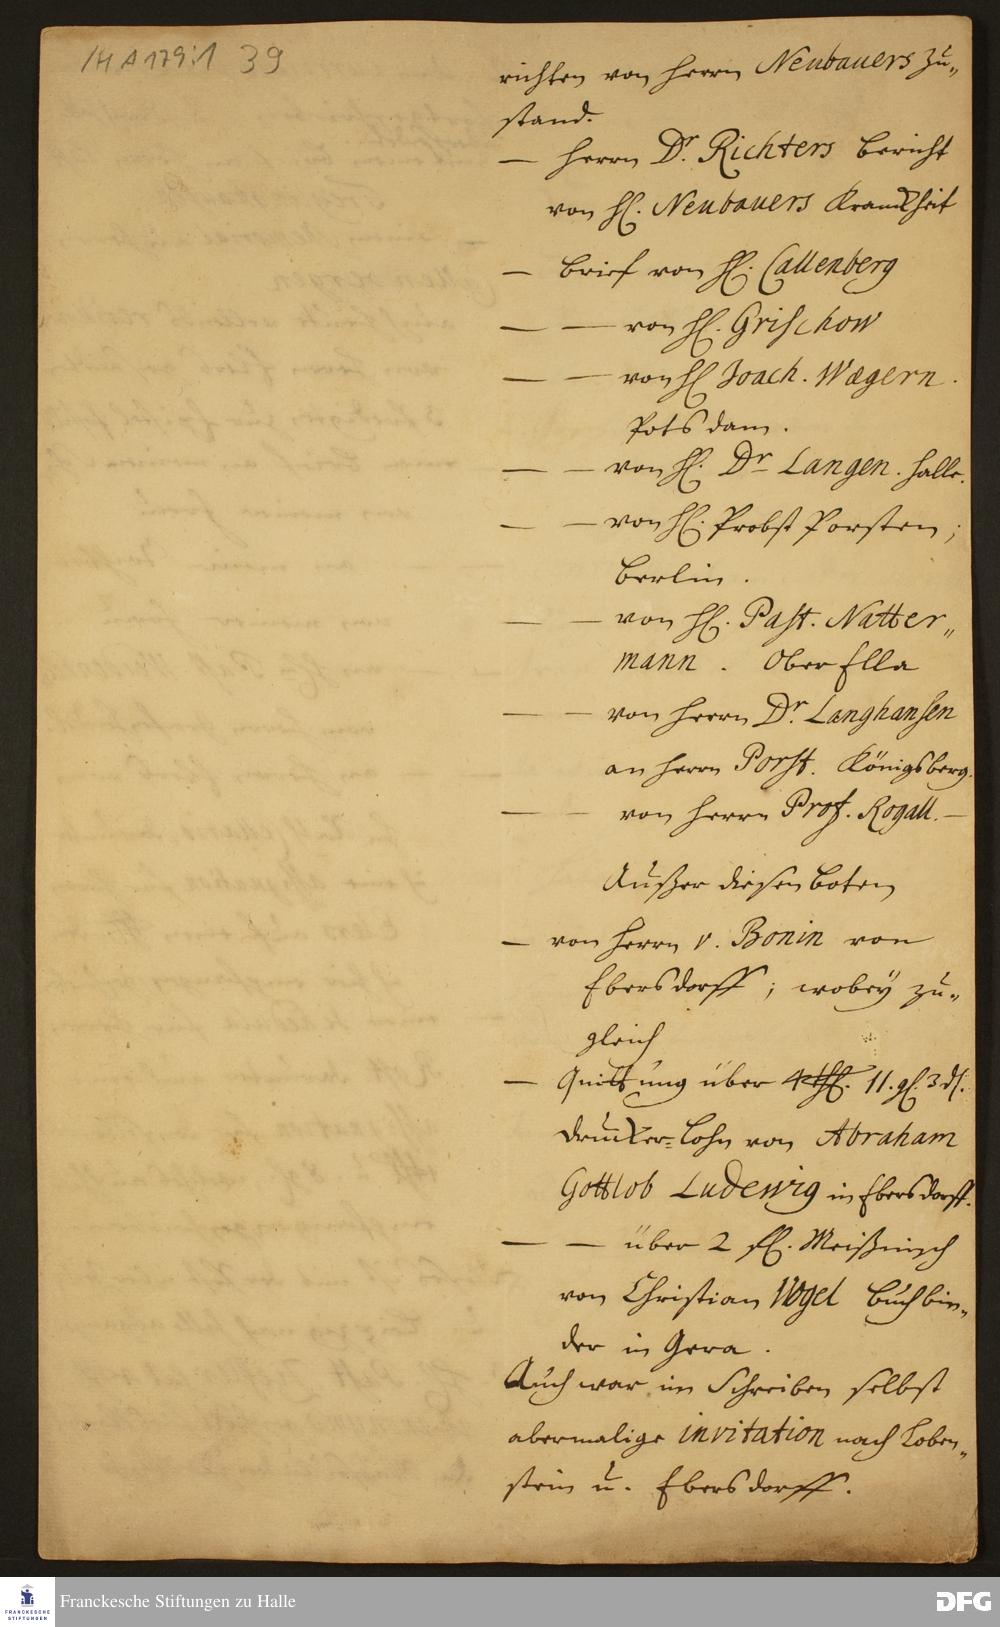 /H A 179:1 39
richten von Herrn Neubauers Zu„
stand.
— Herrn Dr. Richters Bericht
von H. Neubauers Kranckheit
— Brief von H. Callenberg
— — von H. Grischow
— — von H Joach. Wægern.
Potsdam.
— — von H. Dr Langen. Halle.
— — von H. Probst Porsten;
Berlin.
— — von H. Past. Natter„
mann. Ober Ella
— — von Herrn Dr. Langhansen
an Herrn Porst. Königsberg.
— — von Herrn Prof. Rogall. —
Außer diesen boten
— von Herrn v. Bonin von
Ebersdorff; wobey zu„
gleich
— Quittung über 11. gl. 3 d.
Drucker=Lohn von Abraham
Gottlob Ludewig in Ebersdorff.
— — über 2 fl. Meißnisch
von Christian Vogel Buchbin„
der in Gera.
Auch war im Schreiben selbst
abermalige invitation nach Loben„
stein u. Ebersdorff.
FRANCKESCHE
STIFTUNGEN
Franckesche Stiftungen zu Halle
DFG